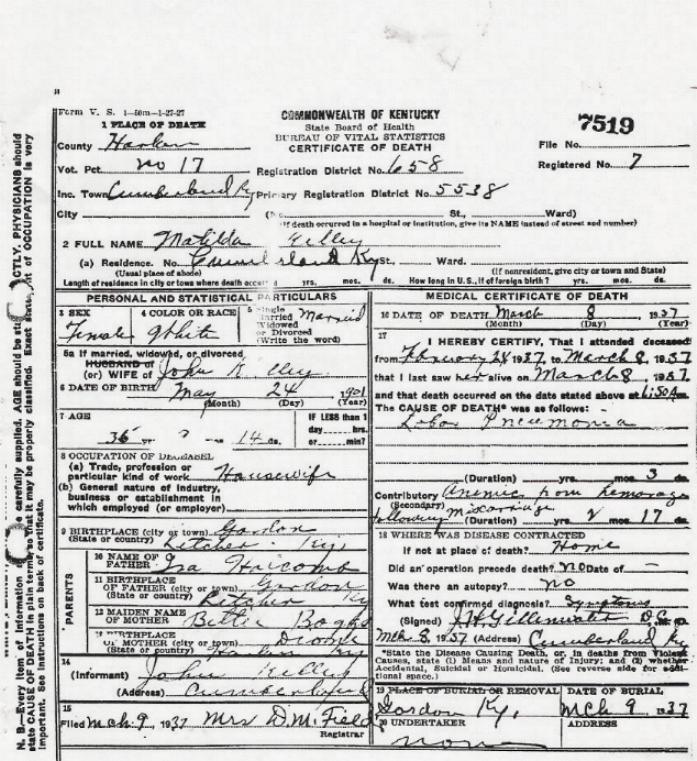 Form V. S. 1—50m—1-27-27
COMMONWEALTH OF KENTUCKY
State Board of Health
BUREAU OF VITAL STATISTICS
CERTIFICATE OF DEATH
7519
File No.
Registered No. 7
1 PLACE OF DEATH
County Harlan
Vot. Pct. no 17
Registration District No. 658
Inc. Town Cumberland Ky
Primary Registration District No. 5538
City (No. St., Ward)
(If death occurred in a hospital or institution, give its NAME instead of street and number)
2 FULL NAME Matilda Kelley
(a) Residence. No. Cumberland Ky St. Ward.
(Usual place of abode) (If nonresident, give city or town and State)
Length of residence in city or town where death occurred yrs. mos. ds. How long in U.S., if of foreign birth? yrs. mos. ds.
PERSONAL AND STATISTICAL PARTICULARS
3 SEX Female
4 COLOR OR RACE White
5 Single Married Widowed or Divorced (Write the word) Married
5a If married, widowed, or divorced
HUSBAND of
(or) WIFE of John Kelley
6 DATE OF BIRTH May 24 1901
(Month) (Day) (Year)
7 AGE
IF LESS than 1
day hrs.
or min?
yr 14 ds.
8 OCCUPATION OF DECEASED
(a) Trade, profession or
particular kind of work Housewife
(b) General nature of industry,
business or establishment in
which employed (or employer)
9 BIRTHPLACE (city or town) Gordon
(State or country) Letcher Ky.
PARENTS
10 NAME OF
FATHER Ira Holcomb
11 BIRTHPLACE
OF FATHER (city or town) Gordon
(State or country) Letcher Ky
12 MAIDEN NAME
OF MOTHER Boggs
13 BIRTHPLACE
OF MOTHER (city or town)
(State or country) Harlan Ky
14
(Informant) John Kelley
(Address) Cumberland
15
Filed Mch 9, 1937 Mrs D.M. Field
Registrar
MEDICAL CERTIFICATE OF DEATH
16 DATE OF DEATH March 8 1937
(Month) (Day) (Year)
17
I HEREBY CERTIFY, That I attended deceased
from February 28 1937, to March 8, 1937
that I last saw her alive on March 8, 1937
and that death occurred on the date stated above at 6:50 A m.
The CAUSE OF DEATH* was as follows:
Lobar Pneumonia
(Duration) yrs. mos. 3 ds.
Contributory Anemic from hemorage
(Secondary)
following Miscarriage (Duration) yrs. 17 ds.
18 WHERE WAS DISEASE CONTRACTED
If not at place of death? Home
Did an operation precede death? no Date of —
Was there an autopsy? no
What test confirmed diagnosis? Symptoms
(Signed)
Mch 8, 1937 (Address) Cumberland Ky
*State the Disease Causing Death, or, in deaths from Violent
Causes, state (1) Means and nature of Injury; and (2) whether
Accidental, Suicidal or Homicidal. (See reverse side for addi-
tional space.)
19 PLACE OF BURIAL OR REMOVAL DATE OF BURIAL
Gordon Ky, Mch 9, 1937
20 UNDERTAKER ADDRESS
none
N. B.—Every item of information should be carefully supplied. AGE should be stated EXACTLY. PHYSICIANS should
state CAUSE OF DEATH in plain terms so that it may be properly classified. Exact statement of OCCUPATION is very
important. See instructions on back of certificate.